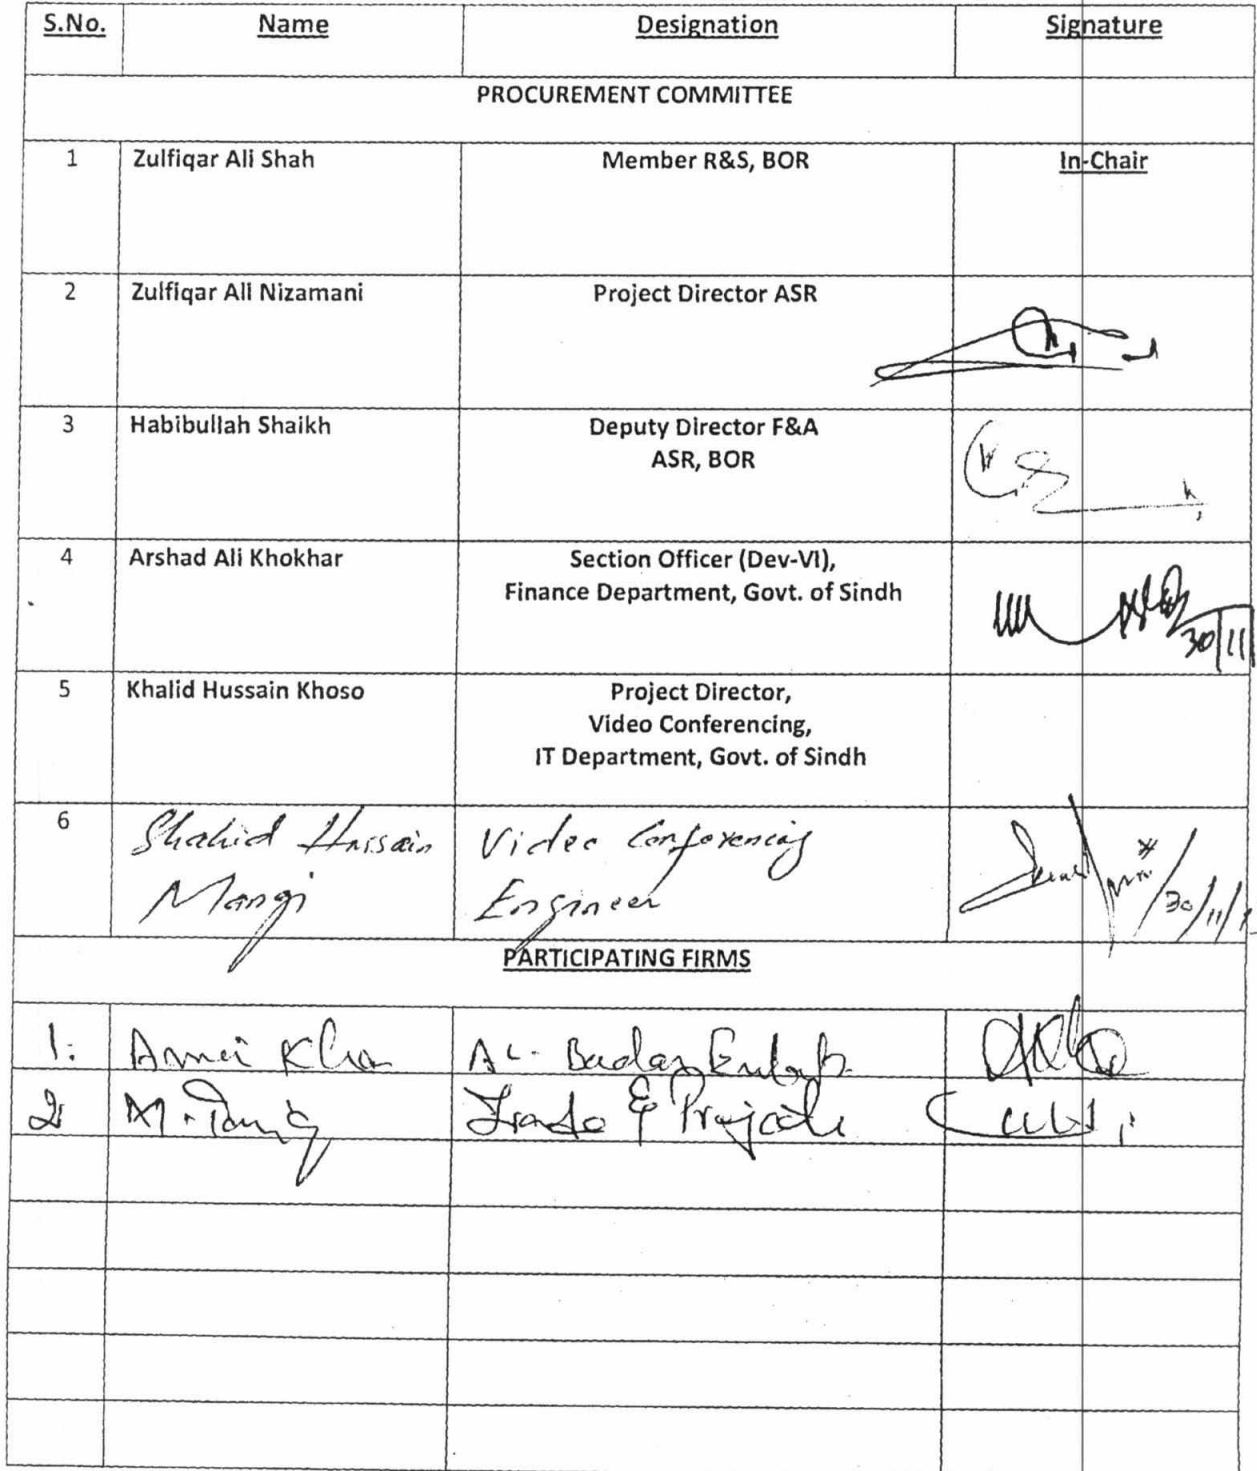 S.No. Name Designation Signature
PROCUREMENT COMMITTEE
1 Zulfiqar Ali Shah Member R&S, BOR In-Chair
2 Zulfiqar Ali Nizamani Project Director ASR
3 Habibullah Shaikh Deputy Director F&A
ASR, BOR
4 Arshad Ali Khokhar Section Officer (Dev-VI),
Finance Department, Govt. of Sindh
30/11
5 Khalid Hussain Khoso Project Director,
Video Conferencing,
IT Department, Govt. of Sindh
6 Shahid Hussain Video Conferencing
Mangi Engineer
30/11/
PARTICIPATING FIRMS
1. Khan AL-
2 M. Trade & Projects